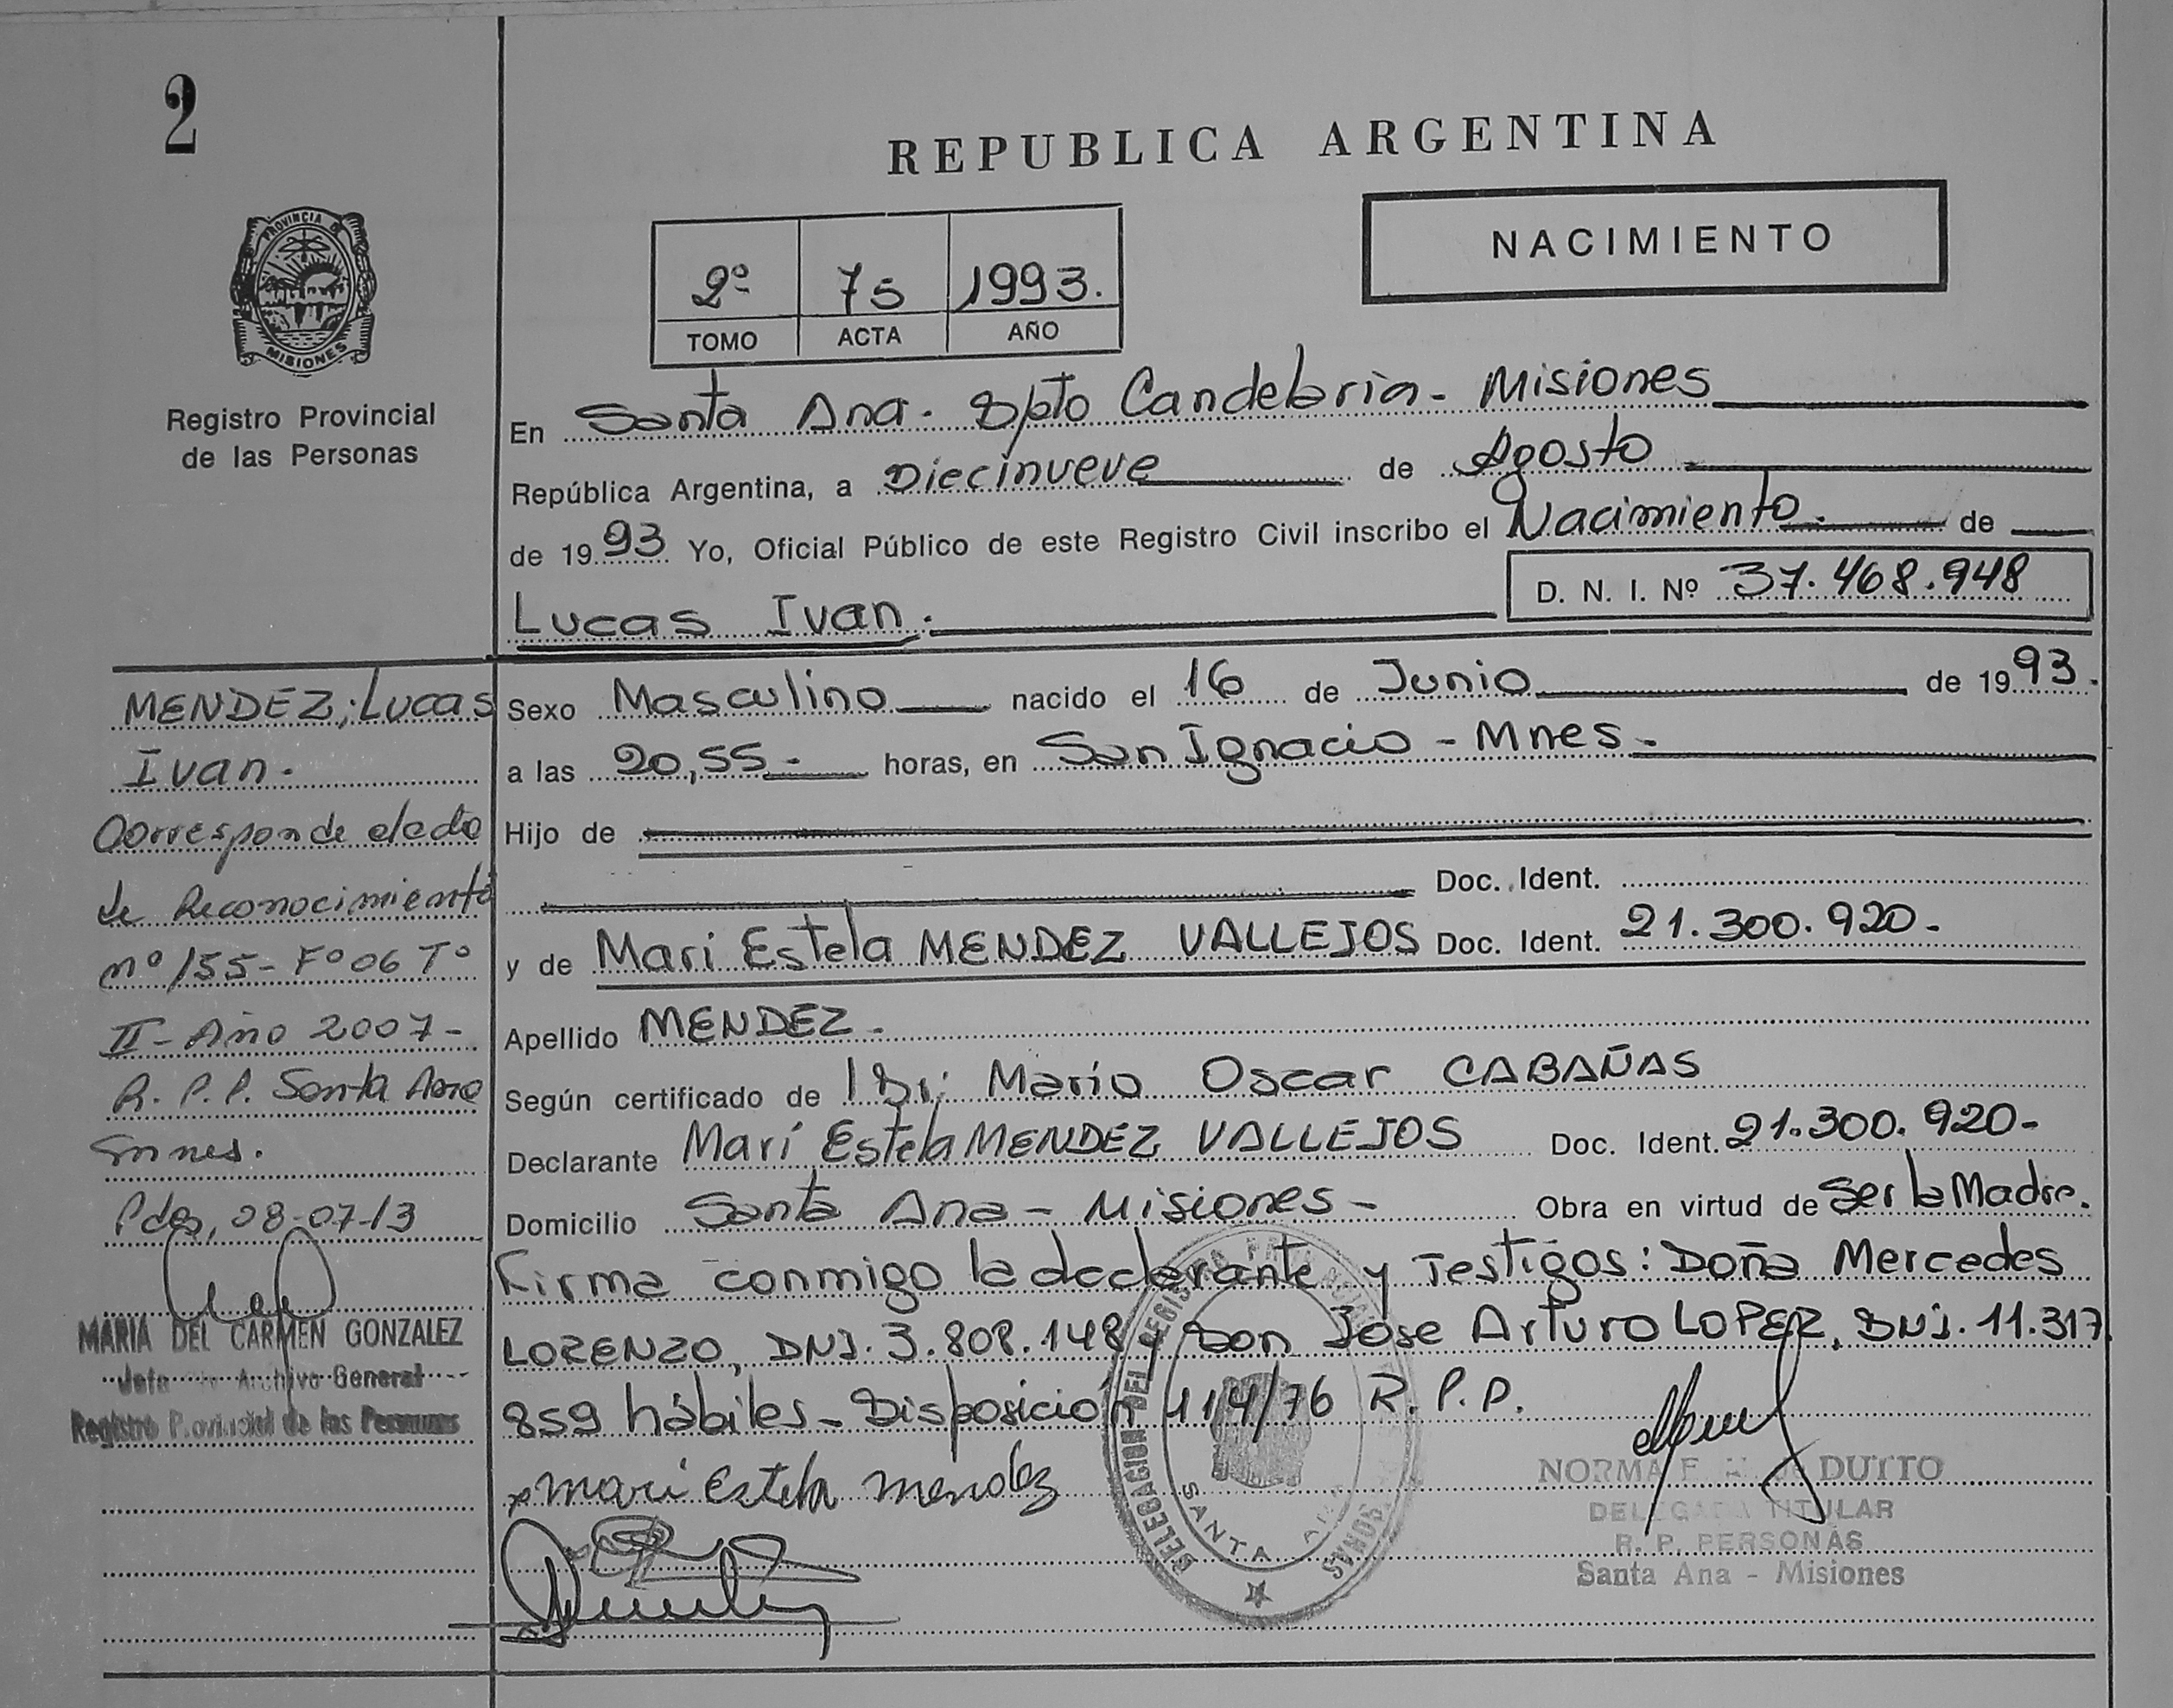 2
REPUBLICA ARGENTINA
NACIMIENTO
2º 75 1993.
TOMO ACTA AÑO
PROVINCIA DE
MISIONES
Registro Provincial
de las Personas
En Santa Ana - Dpto Candelaria - Misiones
República Argentina, a Diecinueve de Agosto
de 1993 Yo, Oficial Público de este Registro Civil inscribo el Nacimiento. de
D. N. I. Nº 37.468.948
Lucas Ivan.
Sexo Masculino nacido el 16 de Junio de 1993.
a las 20,55 - horas, en San Ignacio - Mnes -
Hijo de
Doc. Ident.
y de Mari Estela MENDEZ VALLEJOS Doc. Ident. 21.300.920-
Apellido MENDEZ -
Según certificado de Dr: Mario Oscar CABAÑAS
Declarante Marí Estela MENDEZ VALLEJOS Doc. Ident. 21.300.920-
Domicilio Santa Ana - Misiones - Obra en virtud de Ser la Madre.
Firma conmigo la declarante y Testigos: Doña Mercedes
LORENZO, DNI. 3.808.148 y Don Jose Arturo LOPEZ, DNI. 11.317.
859 hábiles - Disposición 114/76 R. P. P.
x mari estela mendez
MENDEZ; Lucas
Ivan.
Corresponde el acto
de Reconocimiento
nº 155 - Fº 06 Tº
II - Año 2007 -
R. P. P. Santa Ana
Pdas, 08-07-13
MARIA DEL CARMEN GONZALEZ
Jefa Archivo General
Registro Provincial de las Personas
DELEGACION DEL REGISTRO
SANTA ANA
NORMA F. DUTTO
DELEGADA TITULAR
R. P. PERSONAS
Santa Ana - Misiones